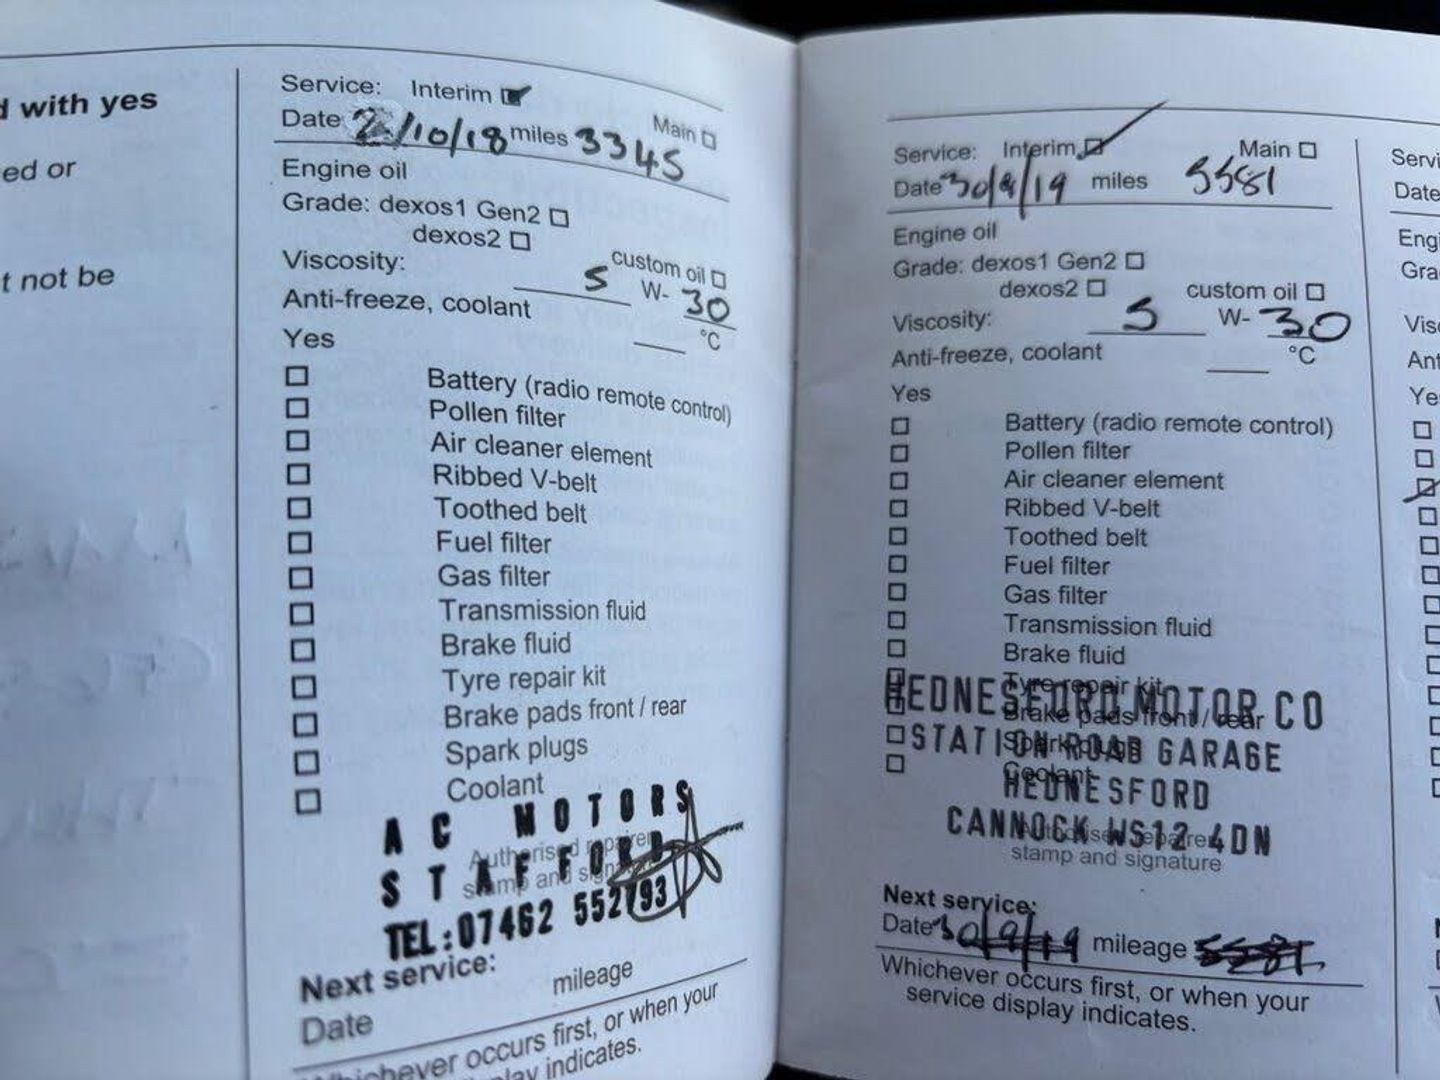 d with yes
ed or
t not be
Service: Interim
Main
Date 2/10/18 miles 3345
Engine oil
Grade: dexos1 Gen2
dexos2
custom oil
Viscosity: 5 W- 30
Anti-freeze, coolant °C
Yes
Battery (radio remote control)
Pollen filter
Air cleaner element
Ribbed V-belt
Toothed belt
Fuel filter
Gas filter
Transmission fluid
Brake fluid
Tyre repair kit
Brake pads front / rear
Spark plugs
Coolant
A C MOTORS
Authorised repairer
STAFFORD
stamp and signature
TEL:07462 552793
Next service:
mileage
Date
Whichever occurs first, or when your
display indicates.
Service: Interim Main
Date 30/9/19 miles 5581
Engine oil
Grade: dexos1 Gen2
dexos2 custom oil
Viscosity: 5 W- 30
Anti-freeze, coolant °C
Yes
Battery (radio remote control)
Pollen filter
Air cleaner element
Ribbed V-belt
Toothed belt
Fuel filter
Gas filter
Transmission fluid
Brake fluid
Tyre repair kit
HEDNESFORD MOTOR CO
Brake pads front / rear
STATION ROAD GARAGE
Spark plugs
Coolant
HEDNESFORD
CANNOCK WS12 4DN
Authorised repairer
stamp and signature
Next service:
Date 30/9/19 mileage 5581
Whichever occurs first, or when your
service display indicates.
Servi
Date
Engi
Gra
Visc
Ant
Yes